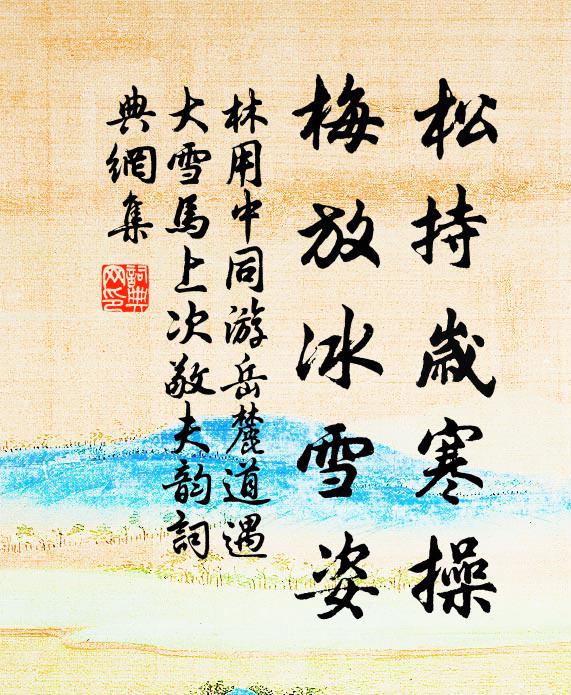 松持歲寒操
梅放冰雪姿
林用中同游岳麓道遇
大雪馬上次敬夫韵詞
典網集
詞典
网印